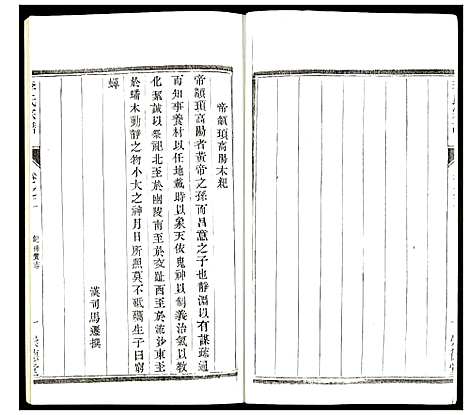 帝顓頊高陽本紀
帝顓頊高陽者黃帝之孫而昌意之子也靜淵以有謀疏通
而知事養材以任地載時以象天依鬼神以制義治氣以教
化絜誠以祭祀北至於幽陵南至於交趾西至於流沙東至
於蟠木動靜之物小大之神月日所照莫不砥礪生子曰窮
蟬
漢司馬遷撰